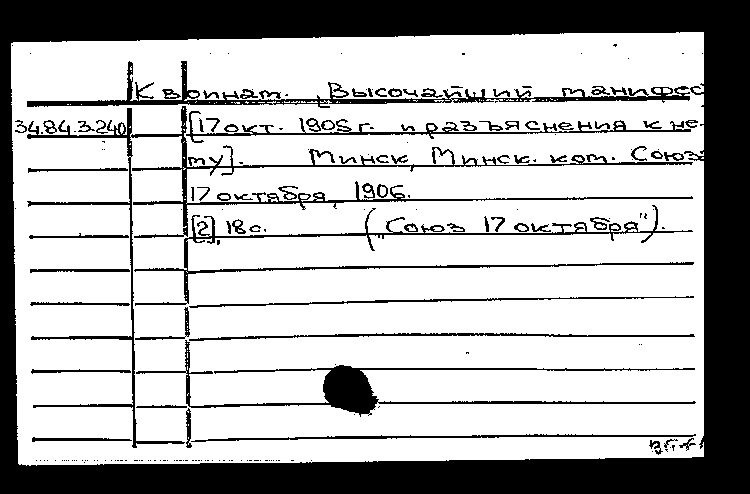 К воинат. Высочайший манифес
34.84.3.240 [17 окт. 1905 г. и разъяснения к не-
му]. Минск, Минск. ком. Союз
17 октября, 1906.
[2], 18 с. („Союз 17 октября").